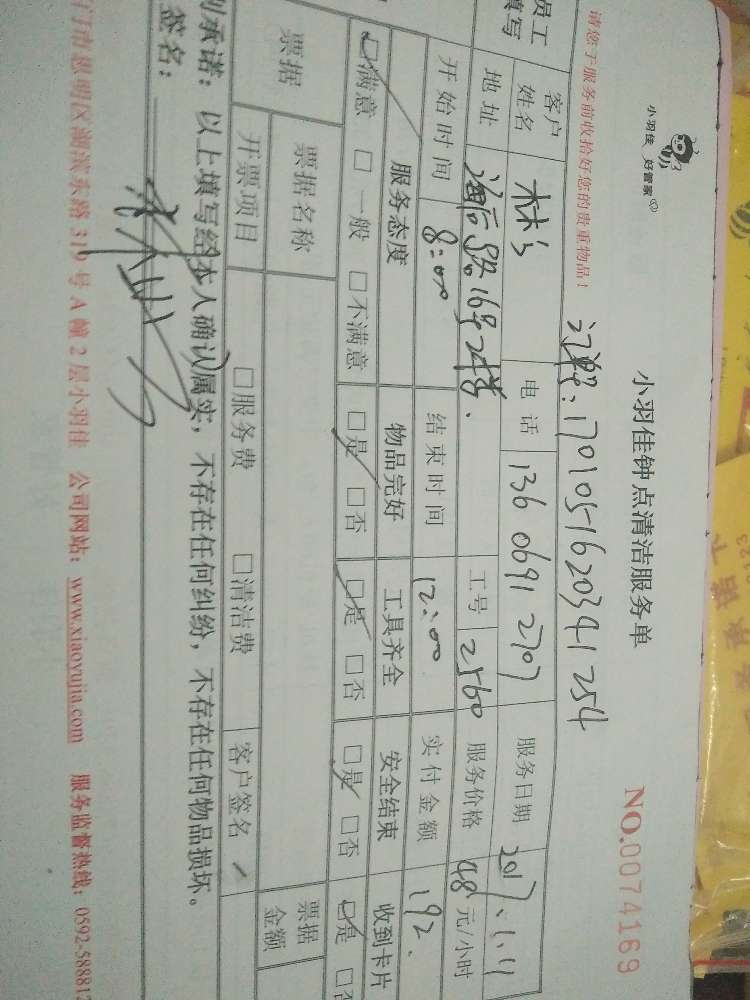 小羽佳 好管家
小羽佳钟点清洁服务单
NO.0074169
请您于服务前收拾好您的贵重物品！
订单：1701051620341254
员工
填写
客户
姓名
电话 136 0691 2707
服务日期 2017.1.11
地址
工号 2560
服务价格 48 元/小时
开始时间 8:00
结束时间 12:00
实付金额 192.
服务态度
物品完好
工具齐全
安全结束
收到卡片
☑满意 □一般 □不满意
☑是 □否
☑是 □否
☑是 □否
☑是 □否
票据
票据名称
票据
金额
开票项目
□服务费 □清洁费
客户签名
承诺：以上填写经本人确认属实，不存在任何纠纷，不存在任何物品损坏。
签名：
门市思明区湖滨东路 319 号 A 幢 2 层小羽佳 公司网站：www.xiaoyujia.com 服务监督热线：0592-588812